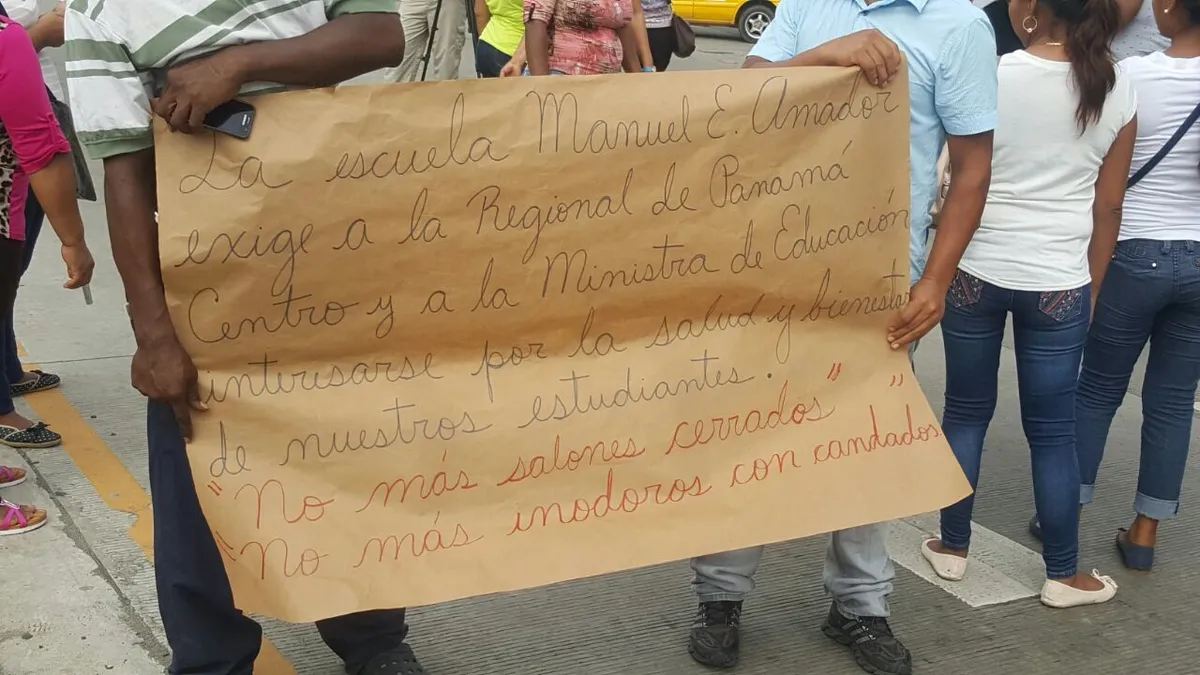 La escuela Manuel E. Amador
exige a la Regional de Panamá
Centro y a la Ministra de Educación
interesarse por la salud y bienestar
de nuestros estudiantes.
"No más salones cerrados"
"No más inodoros con candados"